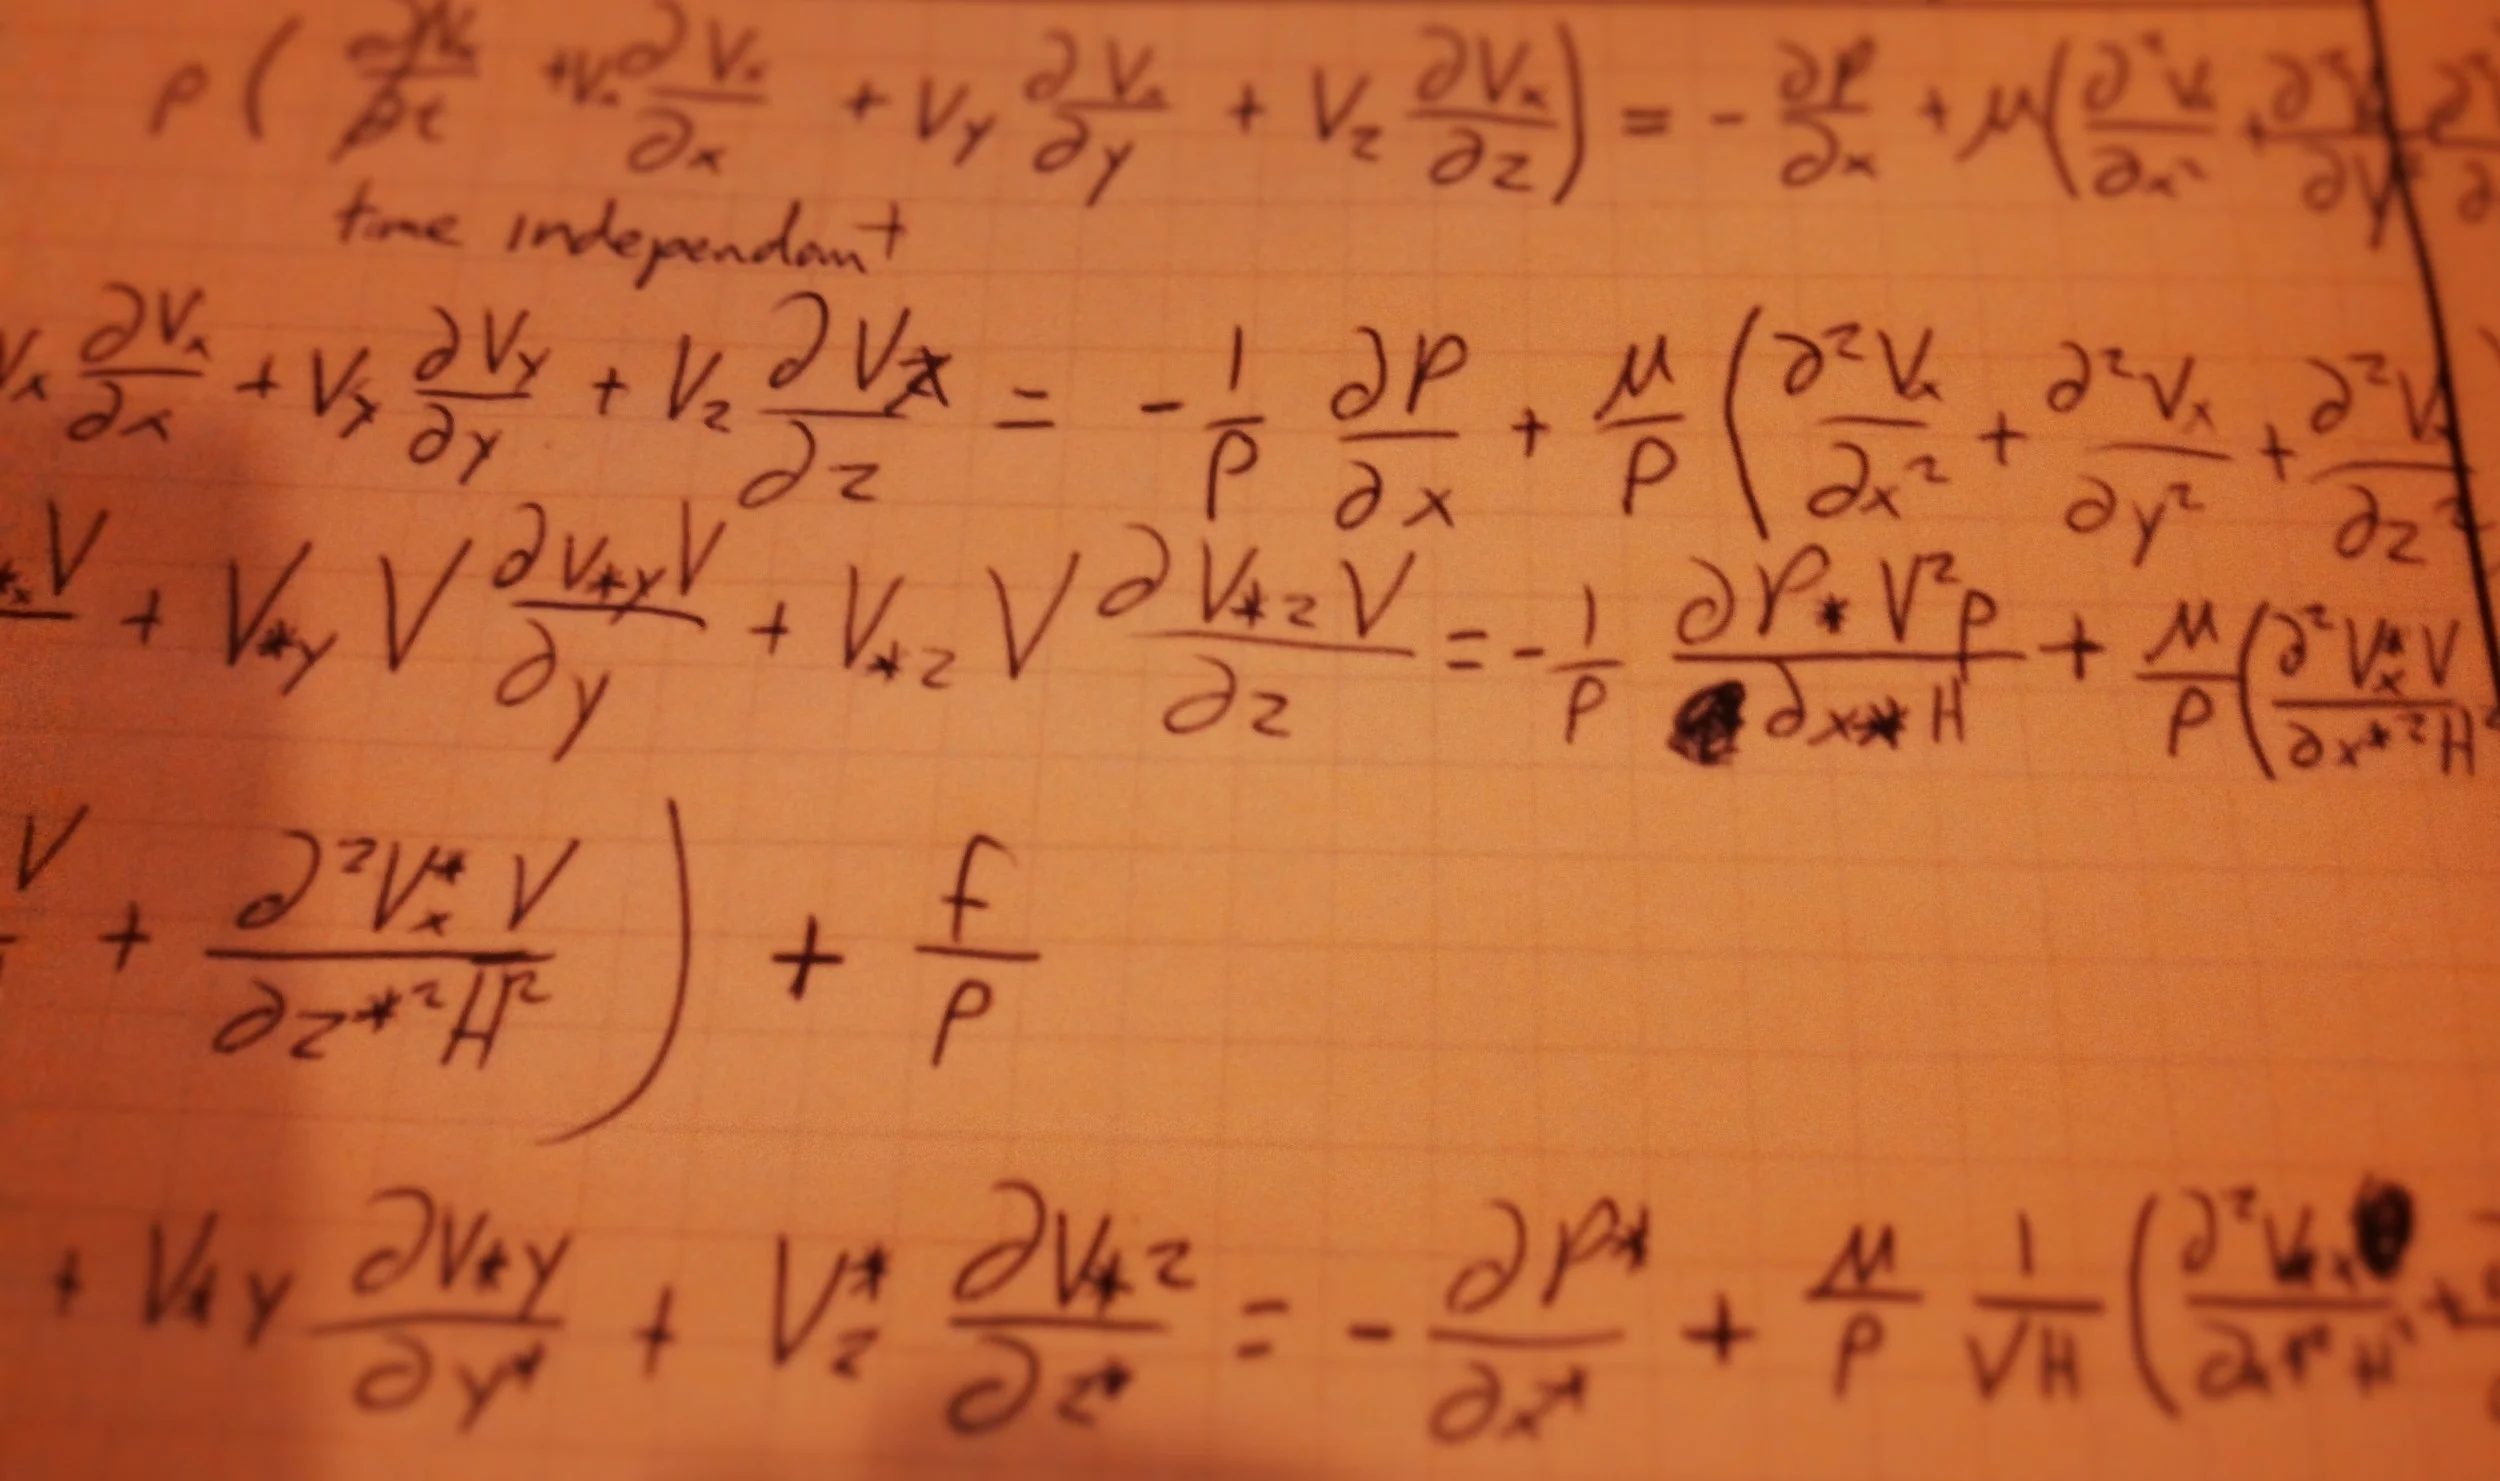 ρ ( ∂Vx/∂t + Vx ∂Vx/∂x + Vy ∂Vx/∂y + Vz ∂Vx/∂z ) = - ∂P/∂x + μ ( ∂²Vx/∂x² + ∂²V/∂y²
time independant
Vx ∂Vx/∂x + Vy ∂Vy/∂y + Vz ∂Vz/∂z = - 1/ρ ∂P/∂x + μ/ρ ( ∂²Vx/∂x² + ∂²Vx/∂y² + ∂²Vx/∂z² )
*x V + V*y V ∂V*yV/∂y + V*z V ∂V*zV/∂z = - 1/ρ ∂P*V²ρ/∂x*H + μ/ρ ( ∂²Vx*V/∂x*²H²
V + ∂²Vx*V/∂z*²H² ) + f/ρ
+ V*y ∂V*y/∂y* + Vz* ∂V*z/∂z* = - ∂P*/∂x* + μ/ρ 1/VH ( ∂²V*x/∂x*²H² +